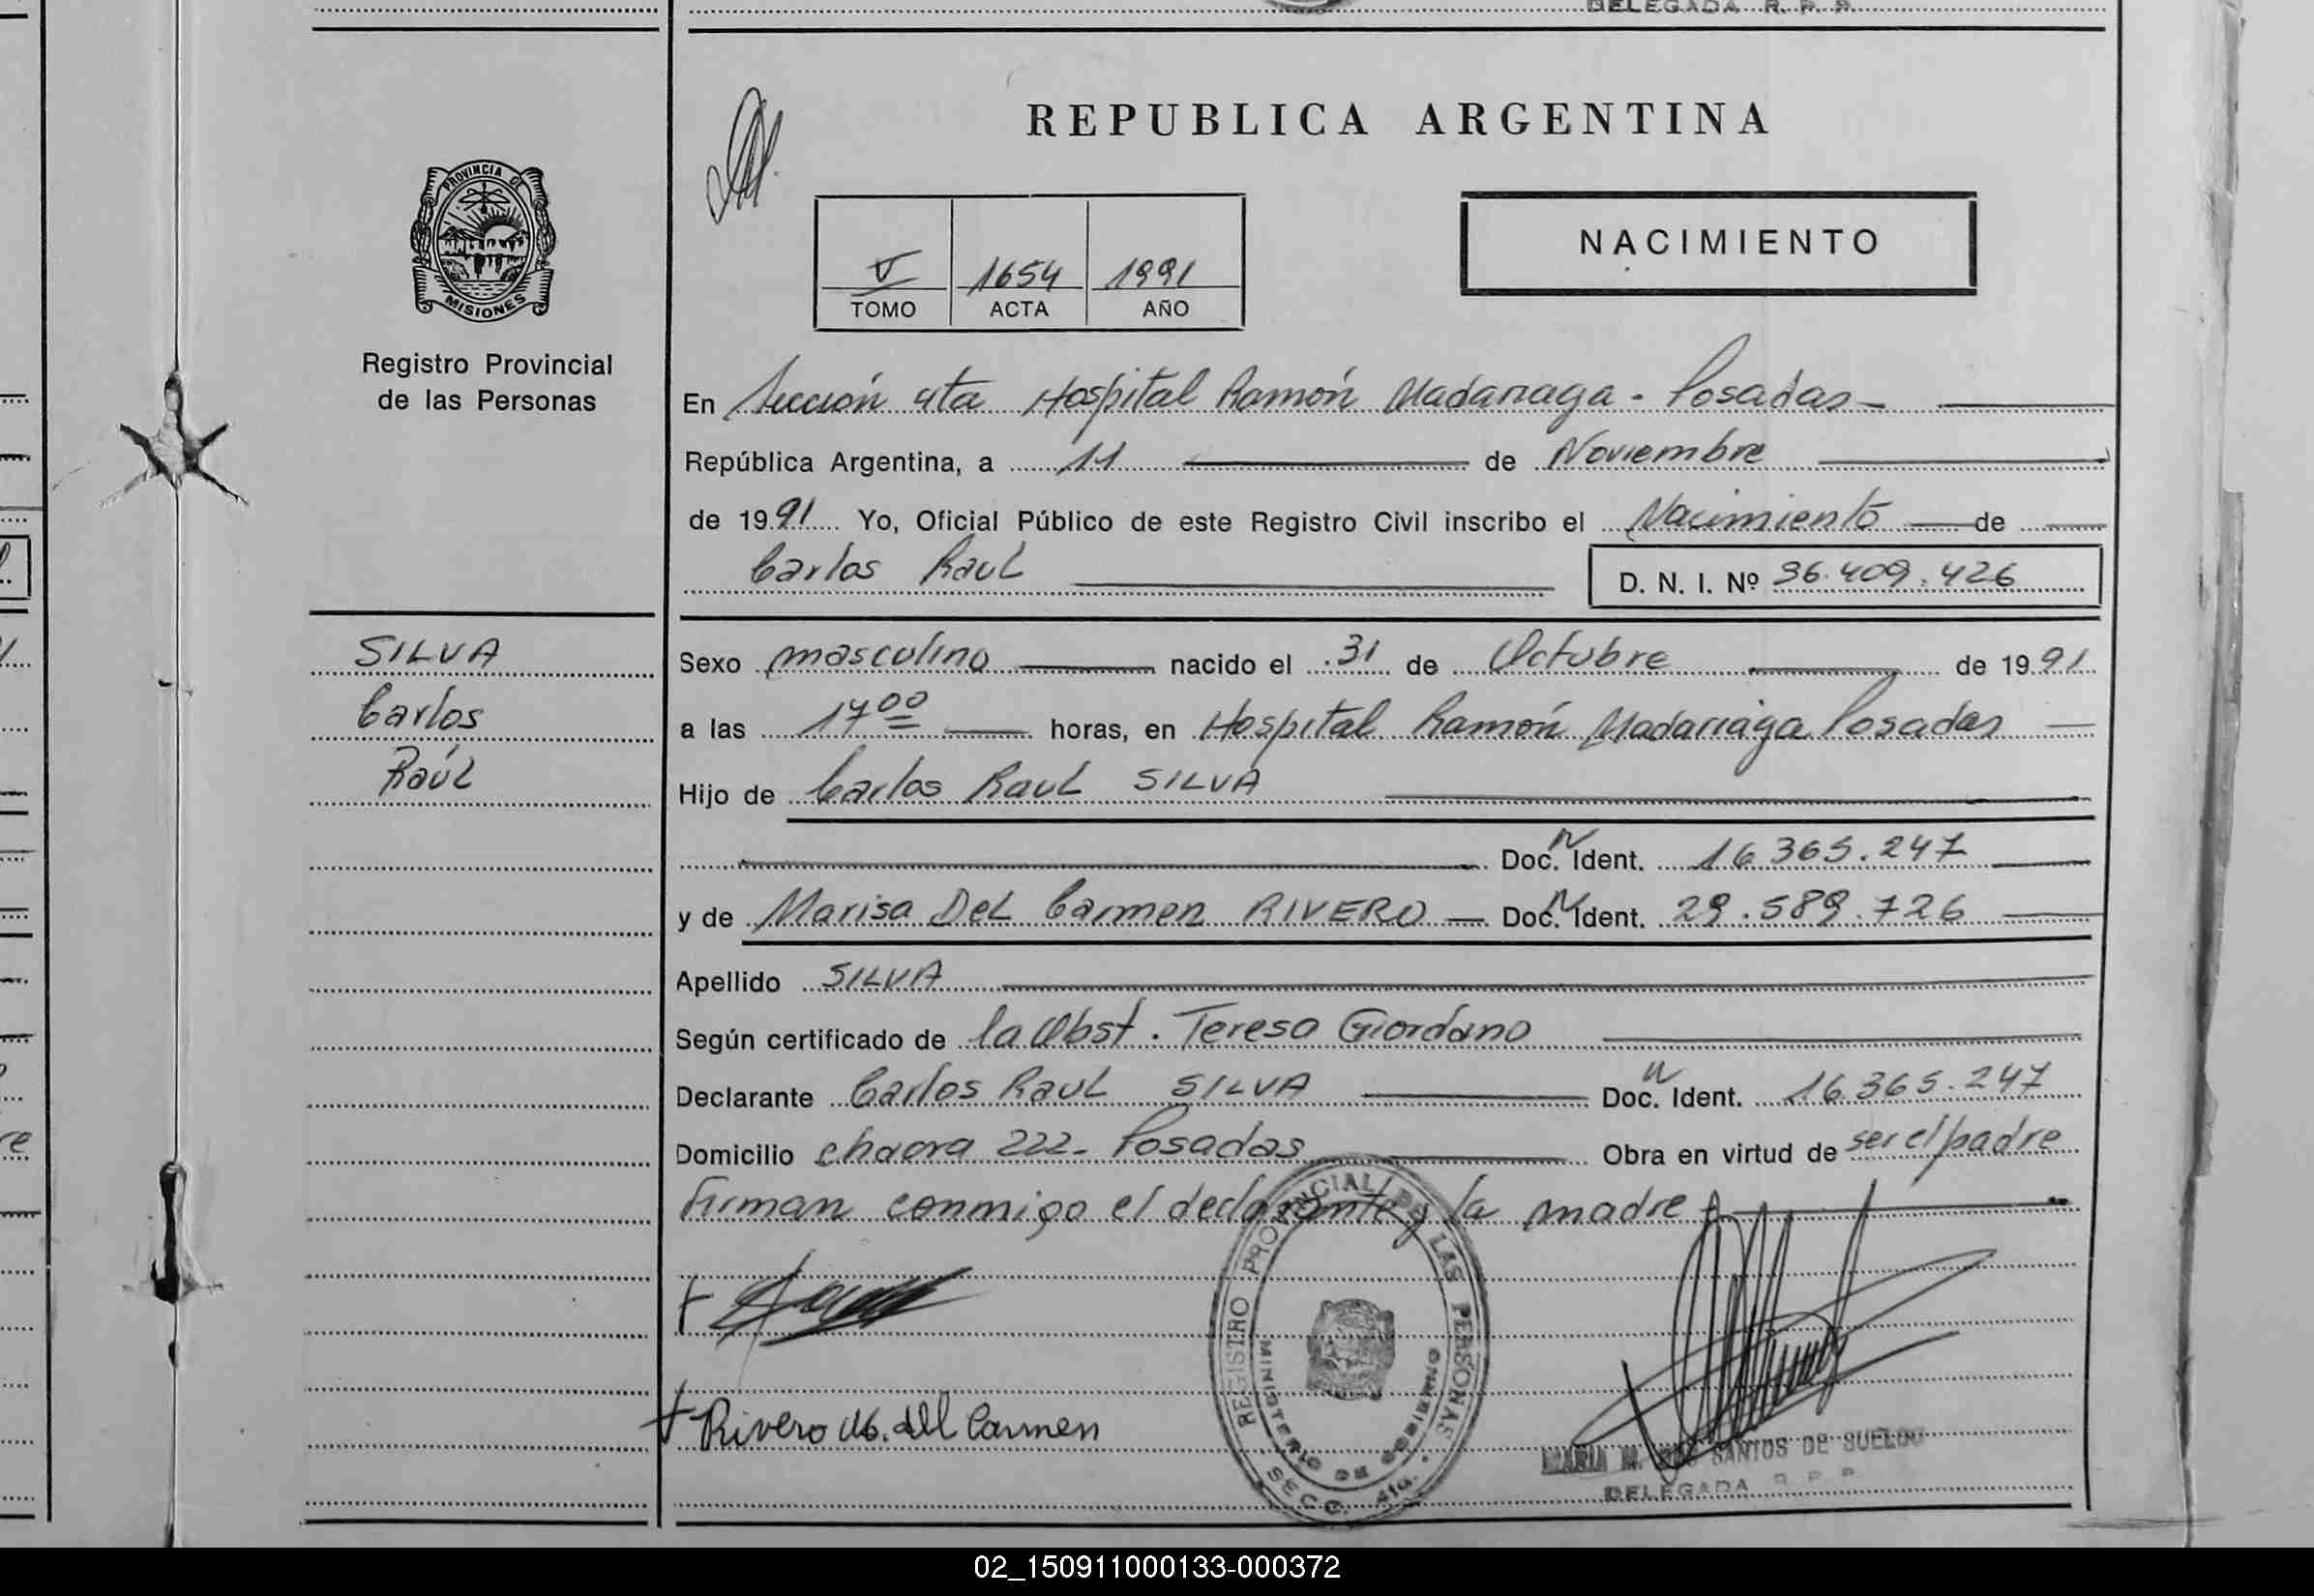 DELEGADA R. P. P.
REPUBLICA ARGENTINA
PROVINCIA DE
MISIONES
Registro Provincial
de las Personas
V 1654 1991
TOMO ACTA AÑO
NACIMIENTO
En Sección 4ta Hospital Ramón Madariaga - Posadas -
República Argentina, a 11 de Noviembre
de 1991 Yo, Oficial Público de este Registro Civil inscribo el Nacimiento de
Carlos Raul D. N. I. Nº 36.409.426
SILVA
Carlos
Raúl
Sexo masculino nacido el 31 de Octubre de 1991
a las 17 00 horas, en Hospital Ramón Madariaga Posadas
Hijo de Carlos Raul SILVA
Doc. N Ident. 16.365.247
y de Marisa Del Carmen RIVERO Doc. N Ident. 29.589.726
Apellido SILVA
Según certificado de la Obst. Teresa Giordano
Declarante Carlos Raul SILVA Doc. N Ident. 16.365.247
Domicilio chacra 222 - Posadas Obra en virtud de ser el padre
Firman conmigo el declarante y la madre
Rivero M. del Carmen
REGISTRO PROVINCIAL DE LAS PERSONAS
MINISTERIO DE GOBIERNO
SECC. 4ta.
MARIA M. DOS SANTOS DE SUELDO
DELEGADA R. P. P.
02_150911000133-000372